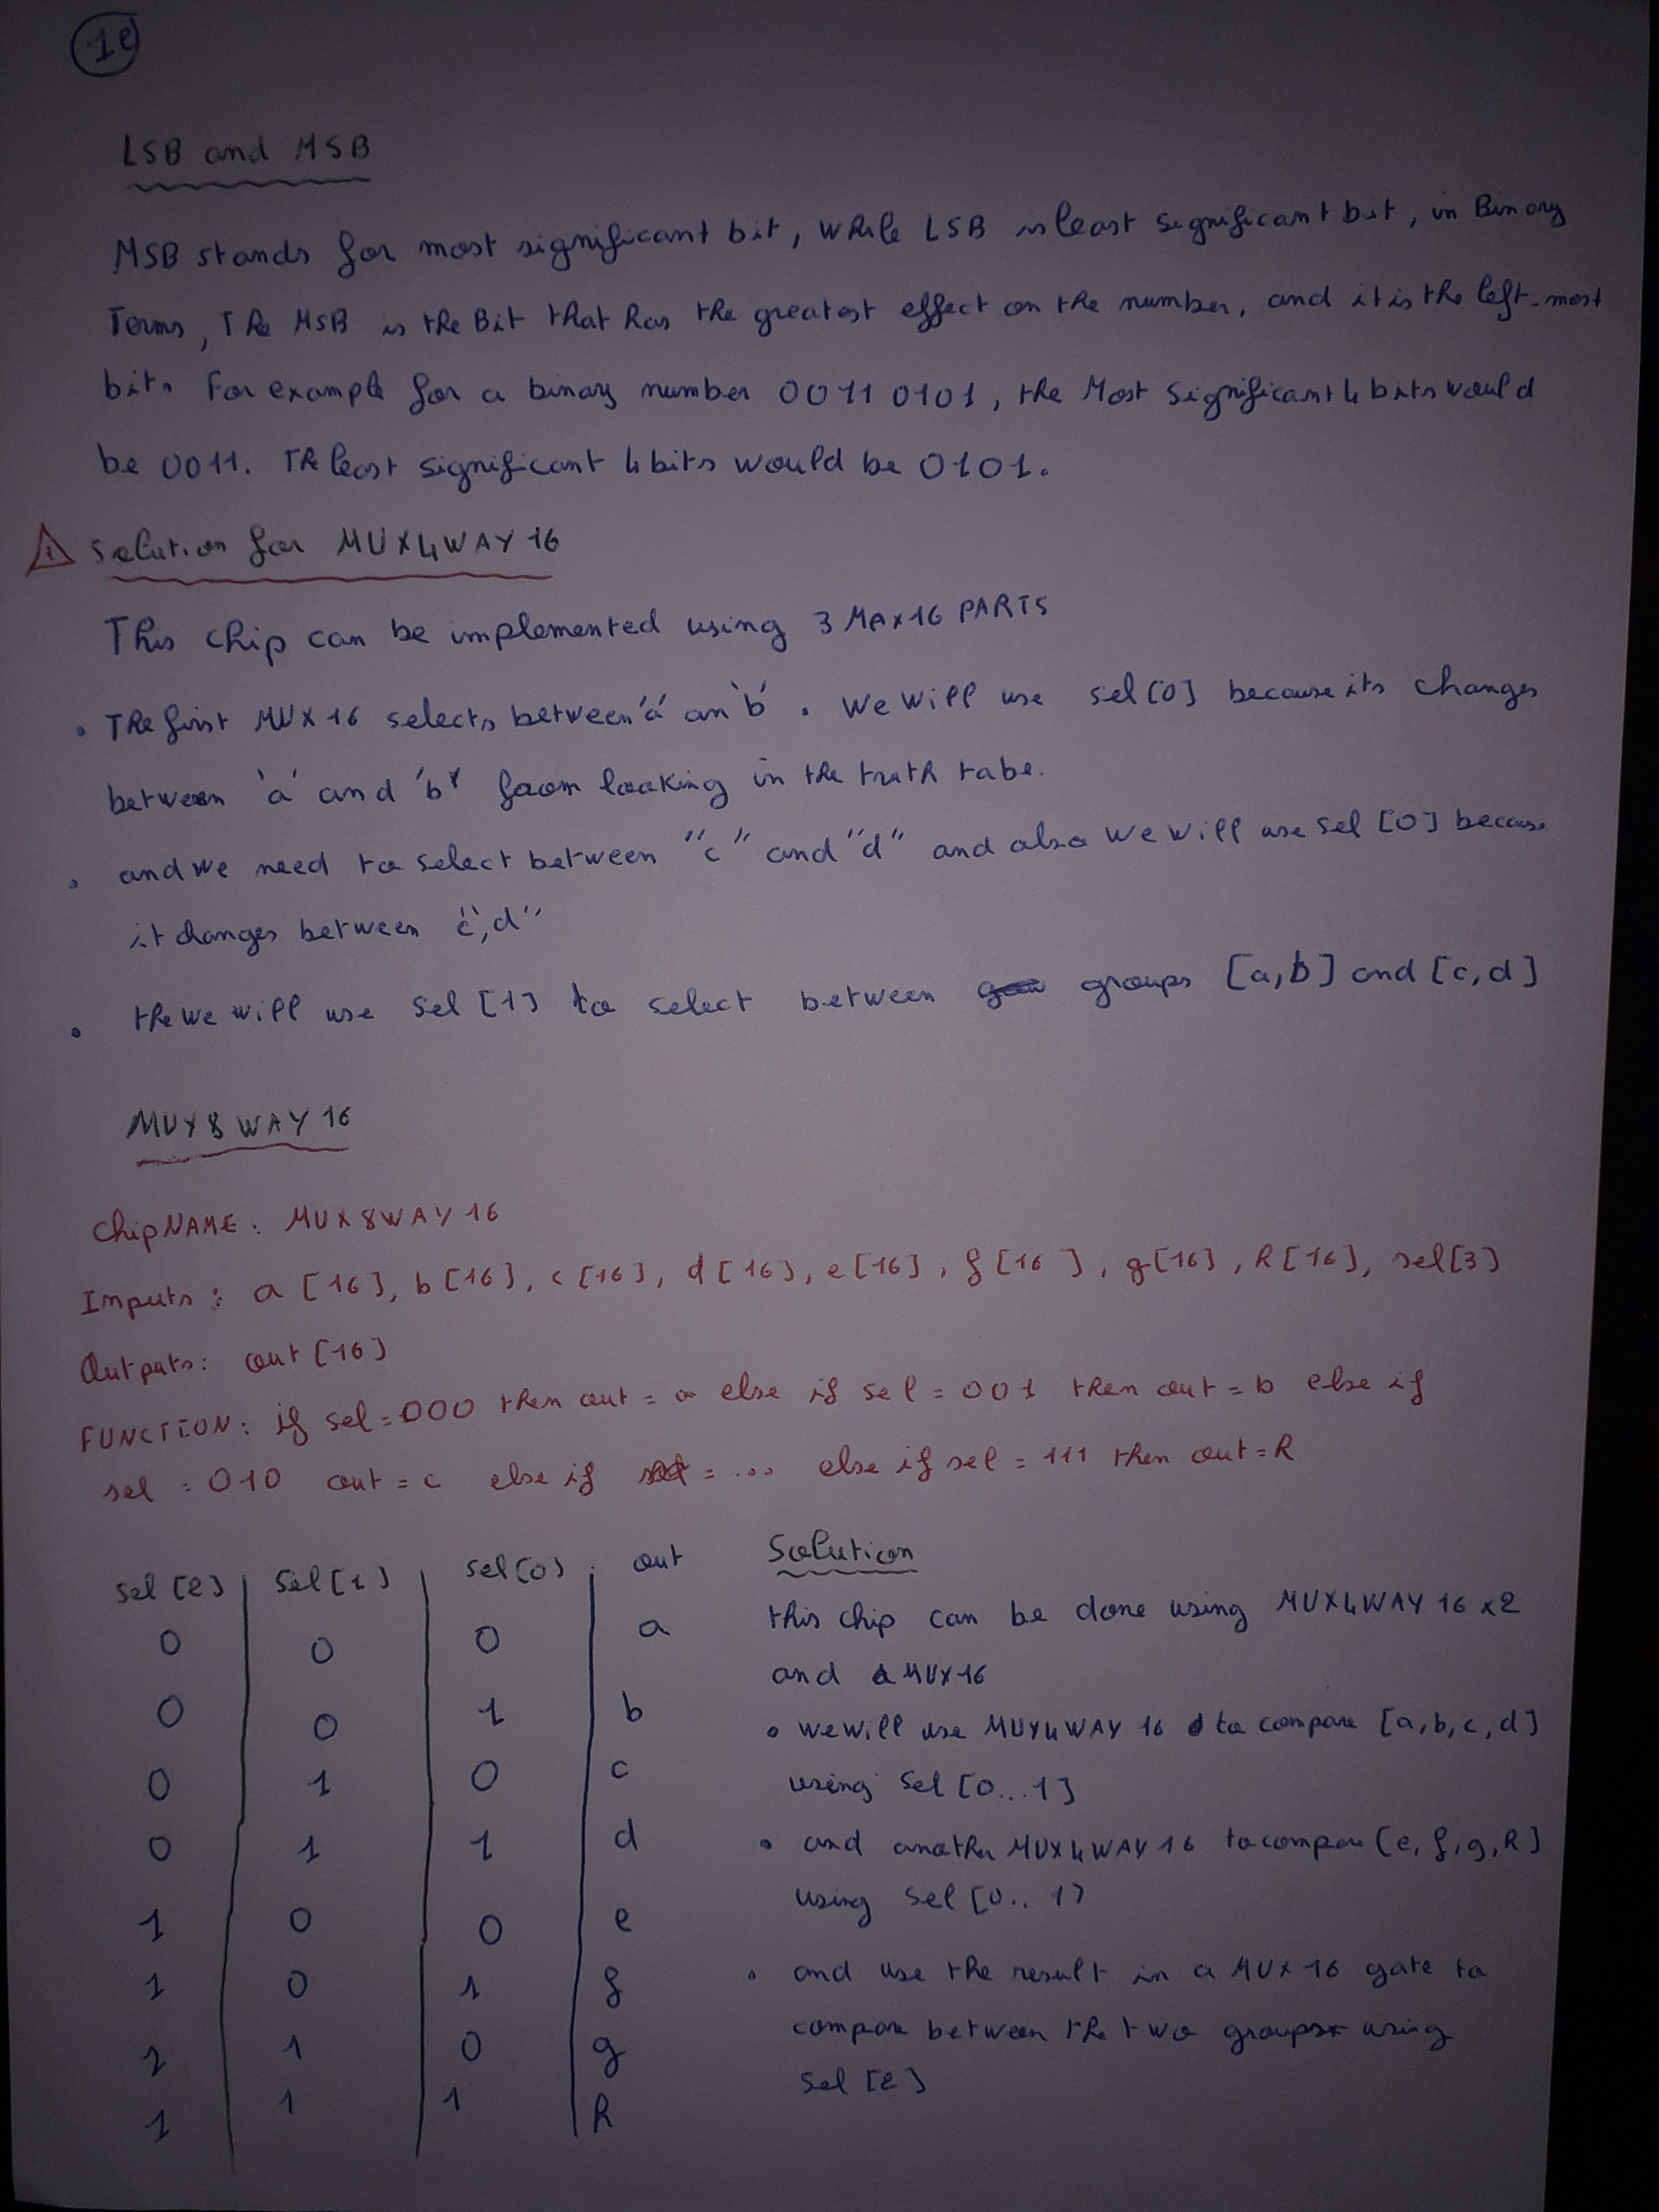 1e
LSB and MSB
MSB stands for most significant bit, while LSB is least significant bit, in Binary
Terms, The MSB is the Bit that has the greatest effect on the number, and it is the left-most
bit. For example for a binary number 0011 0101, the Most Significant 4 bits would
be 0011. The least significant 4 bits would be 0101.
! Solution for MUX4WAY16
This chip can be implemented using 3 MAX16 PARTS
• The first MUX16 selects between 'a' an 'b'. We will use sel[0] because its changes
between 'a' and 'b' from looking in the truth tabe.
• and we need to select between "c" and "d" and also we will use sel [0] because
it changes between "c,d"
• the we will use sel [1] to select between groups [a,b] and [c,d]
MUX8WAY16
ChipNAME: MUX8WAY16
Inputs: a[16], b[16], c[16], d[16], e[16], f[16], g[16], h[16], sel[3]
Outputs: out[16]
FUNCTION: if sel=000 then out = a else if sel = 001 then out = b else if
sel = 010 out = c else if = ... else if sel = 111 then out = h
sel[2] sel[1] sel[0] out
0 0 0 a
0 0 1 b
0 1 0 c
0 1 1 d
1 0 0 e
1 0 1 f
1 1 0 g
1 1 1 h
Solution
this chip can be done using MUX4WAY16 x2
and a MUX16
• we will use MUX4WAY16 to compare [a,b,c,d]
using sel[0...1]
• and another MUX4WAY16 to compare [e,f,g,h]
using sel[0..1]
• and use the result in a MUX16 gate to
compare between the two groups using
sel[2]